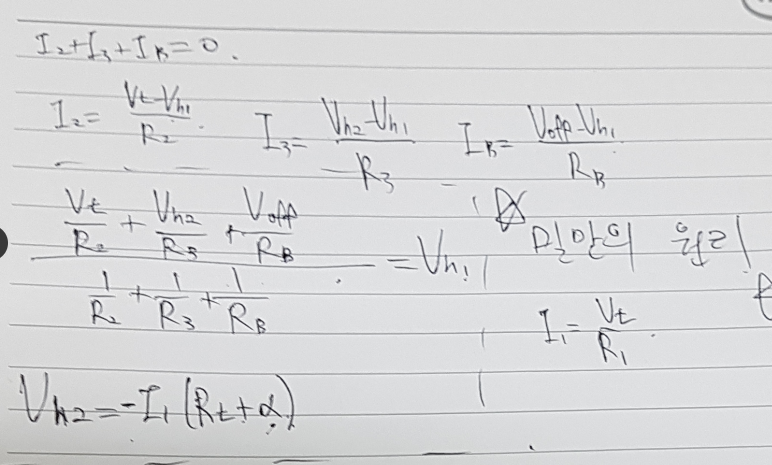 I₂+I₃+I_B=0.
I₂= (Vt-Vn₁)/R₂. I₃= (Vn₂-Vn₁)/R₃ I_B= (Voff-Vn₁)/R_B
(Vt/R₂ + Vn₂/R₃ + Voff/R_B)/(1/R₂ + 1/R₃ + 1/R_B) = Vn₁ 밀만의 원리
I₁= Vt/R₁.
Vn₂=-I₁(Rt+α)